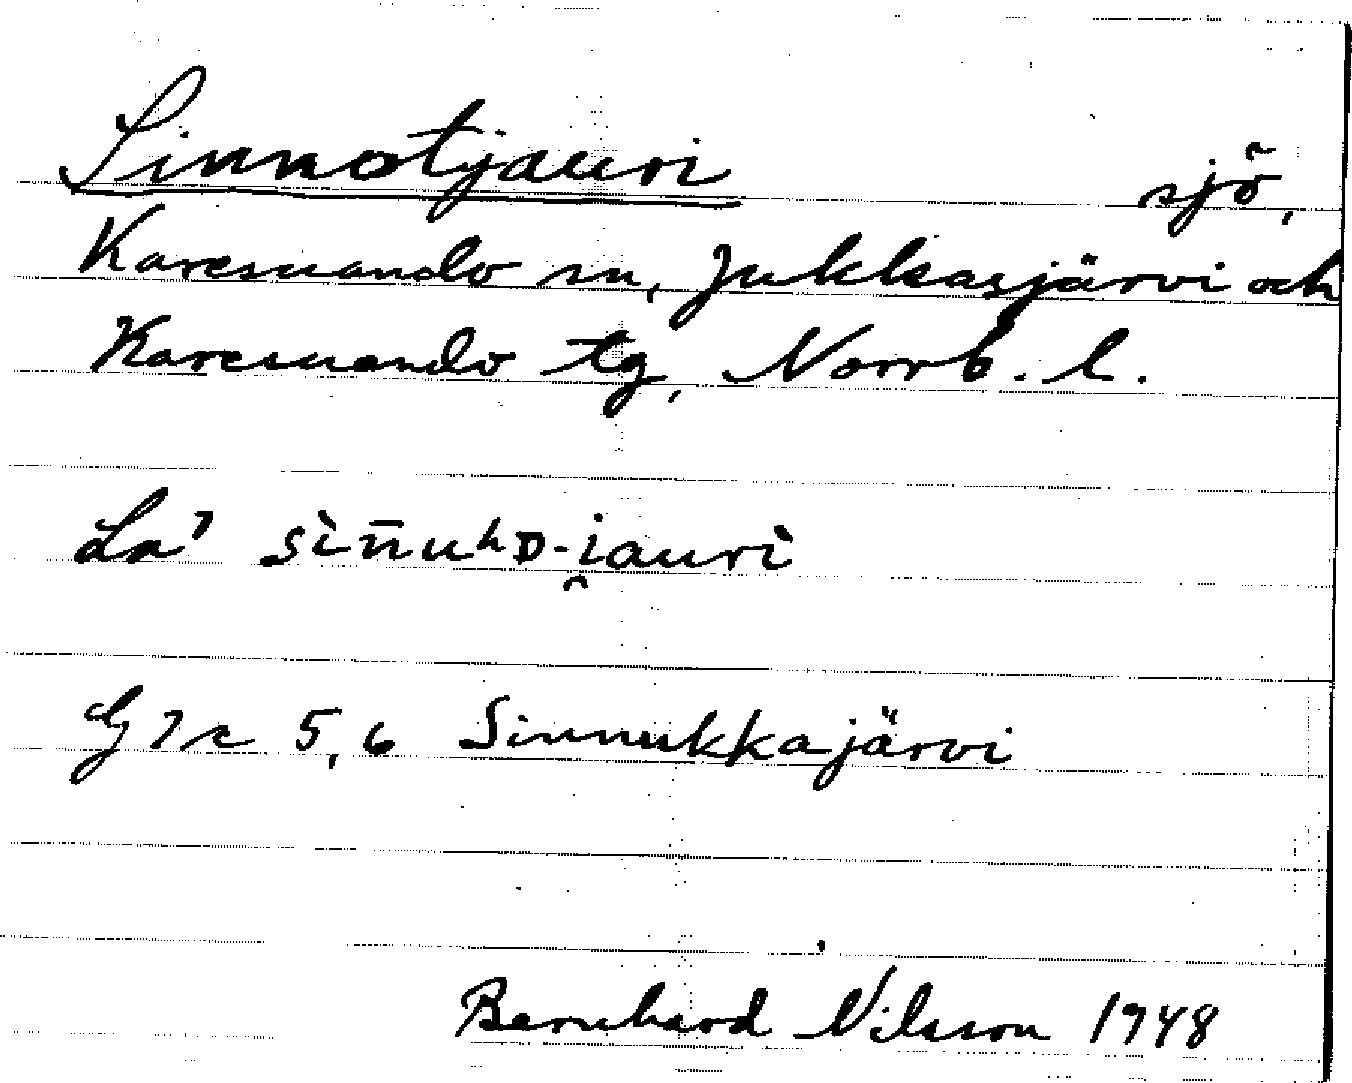 Sinnotjauri sjö,
Karesuando sn, Jukkasjärvi och
Karesuando tg, Norrb. l.
La' sìn̄uʰᴅ-i̯auri
G7c 5,6 Sinnukkajärvi
Bernhard Nilsson 1948